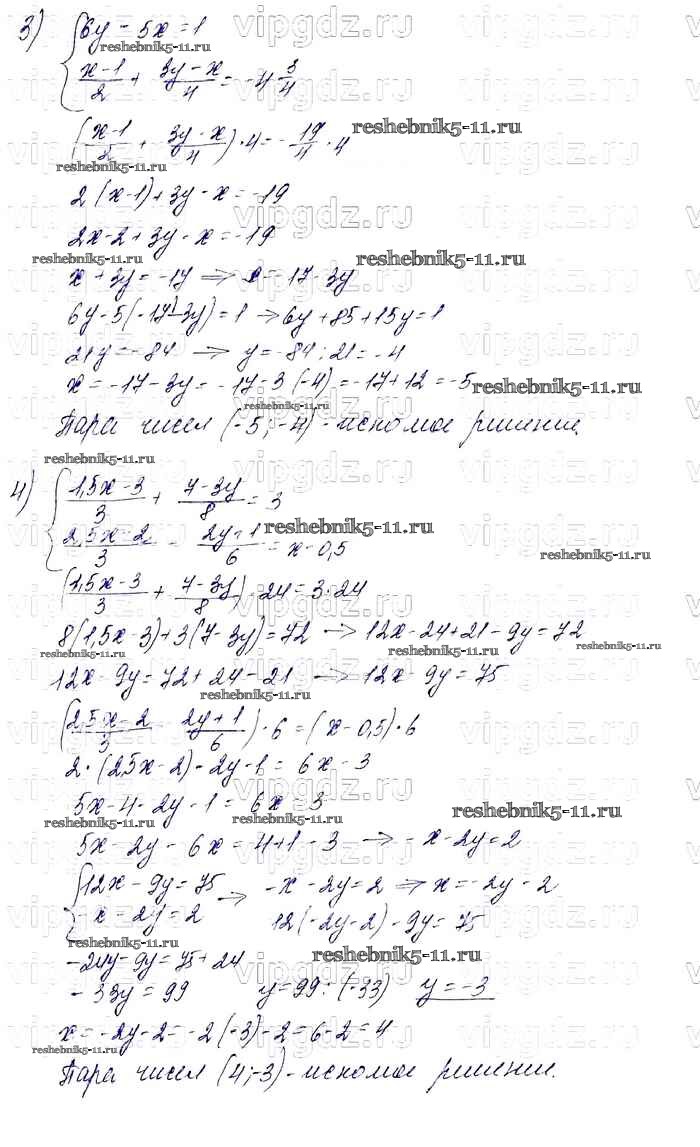 3) { 6y - 5x = 1
(x-1)/2 + (3y-x)/4 = -4 3/4
((x-1)/2 + (3y-x)/4) · 4 = -19/4 · 4
2(x-1) + 3y - x = -19
2x - 2 + 3y - x = -19
x + 3y = -17 => x = -17 - 3y
6y - 5(-17-3y) = 1 → 6y + 85 + 15y = 1
21y = -84 → y = -84 : 21 = -4
x = -17 - 3y = -17 - 3(-4) = -17 + 12 = -5
Пара чисел (-5; -4) - искомое решение.
4) { (1,5x-3)/3 + (7-3y)/8 = 3
(2,5x-2)/3 - (2y+1)/6 = x - 0,5
((1,5x-3)/3 + (7-3y)/8) · 24 = 3·24
8(1,5x-3) + 3(7-3y) = 72 → 12x - 24 + 21 - 9y = 72
12x - 9y = 72 + 24 - 21 → 12x - 9y = 75
((2,5x-2)/3 - (2y+1)/6) · 6 = (x - 0,5) · 6
2·(2,5x-2) - 2y - 1 = 6x - 3
5x - 4 - 2y - 1 = 6x - 3
5x - 2y - 6x = 4 + 1 - 3 → -x - 2y = 2
{ 12x - 9y = 75 → -x - 2y = 2 => x = -2y - 2
-x - 2y = 2 12(-2y-2) - 9y = 75
-24y - 9y = 75 + 24
-33y = 99 y = 99 : (-33) y = -3
x = -2y - 2 = -2(-3) - 2 = 6 - 2 = 4
Пара чисел (4; -3) - искомое решение.
reshebnik5-11.ru
vipgdz.ru